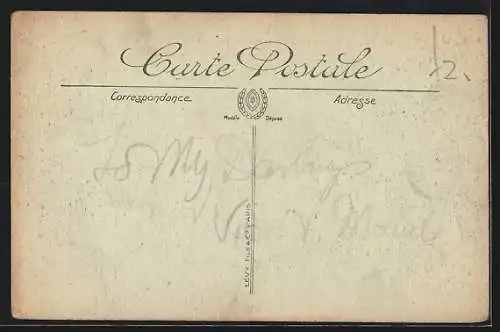 Carte Postale
Correspondance
Adresse
Modèle Déposé
To My Darlings
LÉVY FILS & Cie PARIS